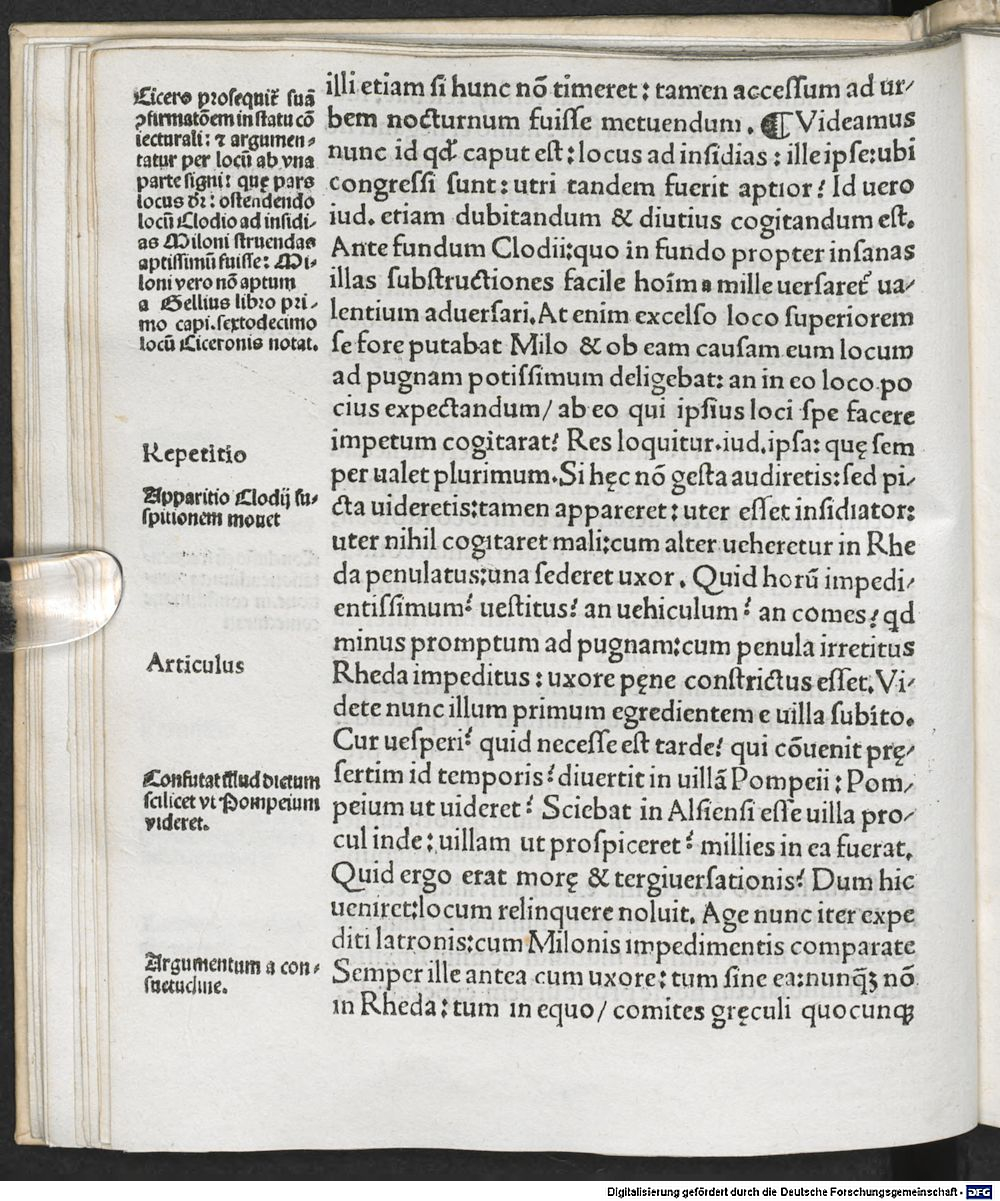 Cicero prosequit᷑ suā
ꝯfirmatōem in statu cō
iecturali: ⁊ argumen⸗
tatur per locū ab vna
parte signi: quę pars
locus dr̄: ostendendo
locū Clodio ad insidi⸗
as Miloni struendas
aptissimū fuisse: Mi⸗
loni vero nō aptum
a Gellius libro pri⸗
mo capi. sextodecimo
locū Ciceronis notat.
Repetitio
Apparitio Clodij su⸗
spitionem mouet
Articulus
Confutat illud dictum
scilicet vt Pompeium
videret.
Argumentum a con⸗
suetudine.
illi etiam si hunc nō timeret: tamen accessum ad ur⸗
bem nocturnum fuisse metuendum. ¶ Videamus
nunc id qd̓ caput est: locus ad insidias: ille ipse: ubi
congressi sunt: utri tandem fuerit aptior? Id uero
iud. etiam dubitandum & diutius cogitandum est.
Ante fundum Clodii: quo in fundo propter insanas
illas substructiones facile hoīm a mille uersaret᷑ ua⸗
lentium aduersari. At enim excelso loco superiorem
se fore putabat Milo & ob eam causam eum locum
ad pugnam potissimum deligebat: an in eo loco po
cius expectandum/ ab eo qui ipsius loci spe facere
impetum cogitarat? Res loquitur. iud. ipsa: quę sem
per ualet plurimum. Si hęc nō gesta audiretis: sed pi⸗
cta uideretis: tamen appareret: uter esset insidiator:
uter nihil cogitaret mali: cum alter ueheretur in Rhe
da penulatus: una sederet uxor. Quid horū impedi⸗
entissimum? uestitus? an uehiculum? an comes? qd
minus promptum ad pugnam: cum penula irretitus
Rheda impeditus: uxore pęne constrictus esset. Vi⸗
dete nunc illum primum egredientem e uilla subito.
Cur uesperi? quid necesse est tarde? qui cōuenit prę⸗
sertim id temporis? diuertit in uillā Pompeii: Pom⸗
peium ut uideret? Sciebat in Alsiensi esse uilla pro⸗
cul inde: uillam ut prospiceret? millies in ea fuerat.
Quid ergo erat morę & tergiuersationis? Dum hic
ueniret: locum relinquere noluit. Age nunc iter expe
diti latronis: cum Milonis impedimentis comparate
Semper ille antea cum uxore: tum sine ea: nunq̄ꝫ nō
in Rheda: tum in equo/ comites gręculi quocunqꝫ
Digitalisierung gefördert durch die Deutsche Forschungsgemeinschaft - DFG